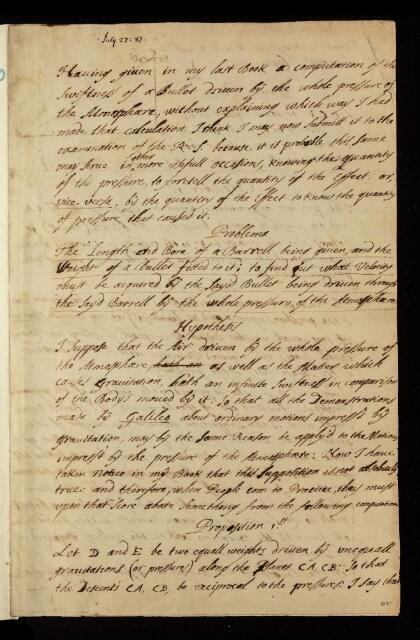 July 27: 87.
Having given in my last Book a computation of the
Swiftness of a Bullet driven by the whole pressure of
the Atmosphære, without explaining which way I had
made that calculation I think I may now submitt it to the
examination of the R. S. because it is probable this same
may serve in other more usfull occasions, knowing the quantity
of the pressure, to foretell the quantity of the Effect. or,
vice verse, by the quantity of the Effect to know the quantity
of pressure that caused it.
Problema
The Length and Bore of a Barrell being given, and the
Weight of a Bullet fitted to it; to find out what Velocity
must be acquired by the sayd Bullet being driven through
the sayd Barrell by the whole pressure of the Atmosphære
Hypothesis
I Suppose that the Air driven by the whole pressure of
the Atmosphære, as well as the Matter which
causes Gravitation, hath an infinite Swiftness in comparison
of the Bodys moved by it: So that all the Demonstrations
made by Galileo about ordinary motions imprest by
gravitation, may by the Same Reason be apply'd to the Motions
imprest by the pressure of the Atmosphære: Now I have
taken notice in my Book that this Supposition is not absolutely
true: and therefore, when People com to Practise, they must
upon that score abate Something from the following computation
Proposition 1st.
Let D and E be two equall weights driven by unequall
gravitations (or pressures) along the Planes CA, CB; So that
the Descents CA, CB, be reciprocal to the pressures: I say that